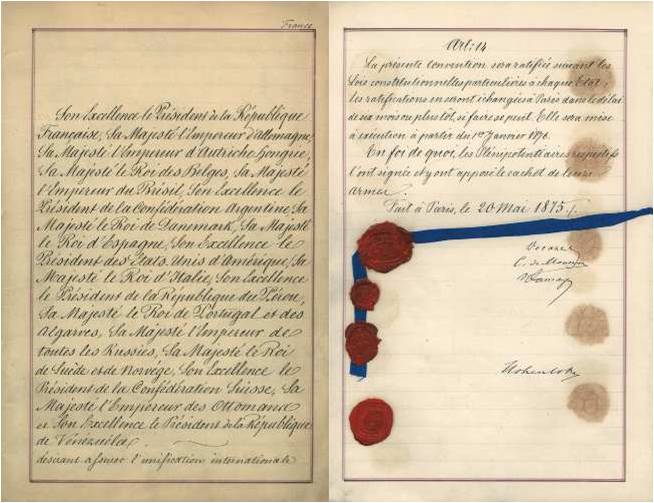 France
Son Excellence le Président de la République
Française, Sa Majesté l'Empereur d'Allemagne,
Sa Majesté l'Empereur d'Autriche Hongrie,
Sa Majesté le Roi des Belges, Sa Majesté
l'Empereur du Brésil, Son Excellence le
Président de la Confédération Argentine, Sa
Majesté le Roi de Danemark, Sa Majesté
le Roi d'Espagne, Son Excellence le
Président des Etats Unis d'Amérique, Sa
Majesté le Roi d'Italie, Son Excellence
le Président de la République du Pérou,
Sa Majesté le Roi de Portugal et des
Algarves, Sa Majesté l'Empereur de
toutes les Russies, Sa Majesté le Roi
de Suède et de Norvège, Son Excellence le
Président de la Confédération Suisse, Sa
Majesté l'Empereur des Ottomans
et Son Excellence le Président de la République
de Vénézuéla,
désirant assurer l'unification internationale
Art: 14
La présente Convention sera ratifiée suivant les
lois constitutionnelles particulières à chaque Etat;
les ratifications en seront échangées à Paris dans le délai
de six mois ou plus tôt, si faire se peut. Elle sera mise
à exécution à partir du 1er Janvier 1876.
En foi de quoi, les Plénipotentiaires respectifs
l'ont signée et y ont apposé le cachet de leurs
armes.
Fait à Paris, le 20 Mai 1875.
Decazes
Hohenlohe